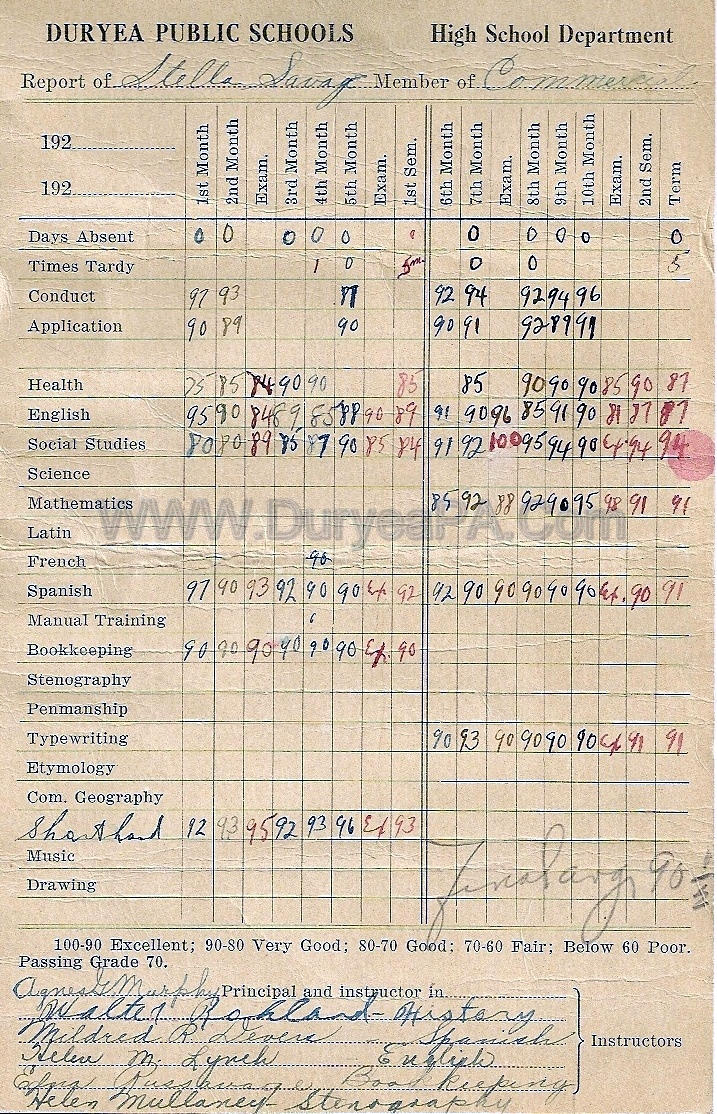 DURYEA PUBLIC SCHOOLS High School Department
Report of Stella Savag Member of Commercial
192 1st Month 2nd Month Exam. 3rd Month 4th Month 5th Month Exam. 1st Sem. 6th Month 7th Month Exam. 8th Month 9th Month 10th Month Exam. 2nd Sem. Term
192
Days Absent 0 0 0 0 0 0 0 0 0 0
Times Tardy 1 0 0 0 5
Conduct 97 93 92 94 92 94 96
Application 90 89 90 90 91 92 89 91
Health 85 84 90 90 85 85 90 90 90 85 90 87
English 95 90 84 89 85 88 90 89 91 90 96 85 91 90 81 87 87
Social Studies 80 80 89 85 87 90 85 84 91 92 100 95 94 90 Ex. 94 94
Science
Mathematics 85 92 88 92 90 95 98 91 91
WWW.DuryeaPA.Com
Latin
French 90
Spanish 97 90 93 92 90 90 Ex 92 92 90 90 90 90 90 Ex. 90 91
Manual Training
Bookkeeping 90 90 90 90 90 90 Ex. 90
Stenography
Penmanship
Typewriting 90 93 90 90 90 90 Ex 91 91
Etymology
Com. Geography
Shorthand 92 93 95 92 93 96 Ex 93
Music
Drawing 90
100-90 Excellent; 90-80 Very Good; 80-70 Good; 70-60 Fair; Below 60 Poor.
Passing Grade 70.
Agnes G Murphy Principal and instructor in
Walter Rohland - History
Mildred R. Devers - Spanish
Instructors
Helen M. Lynch English
Edna Book keeping
Helen Mullaney - Stenography